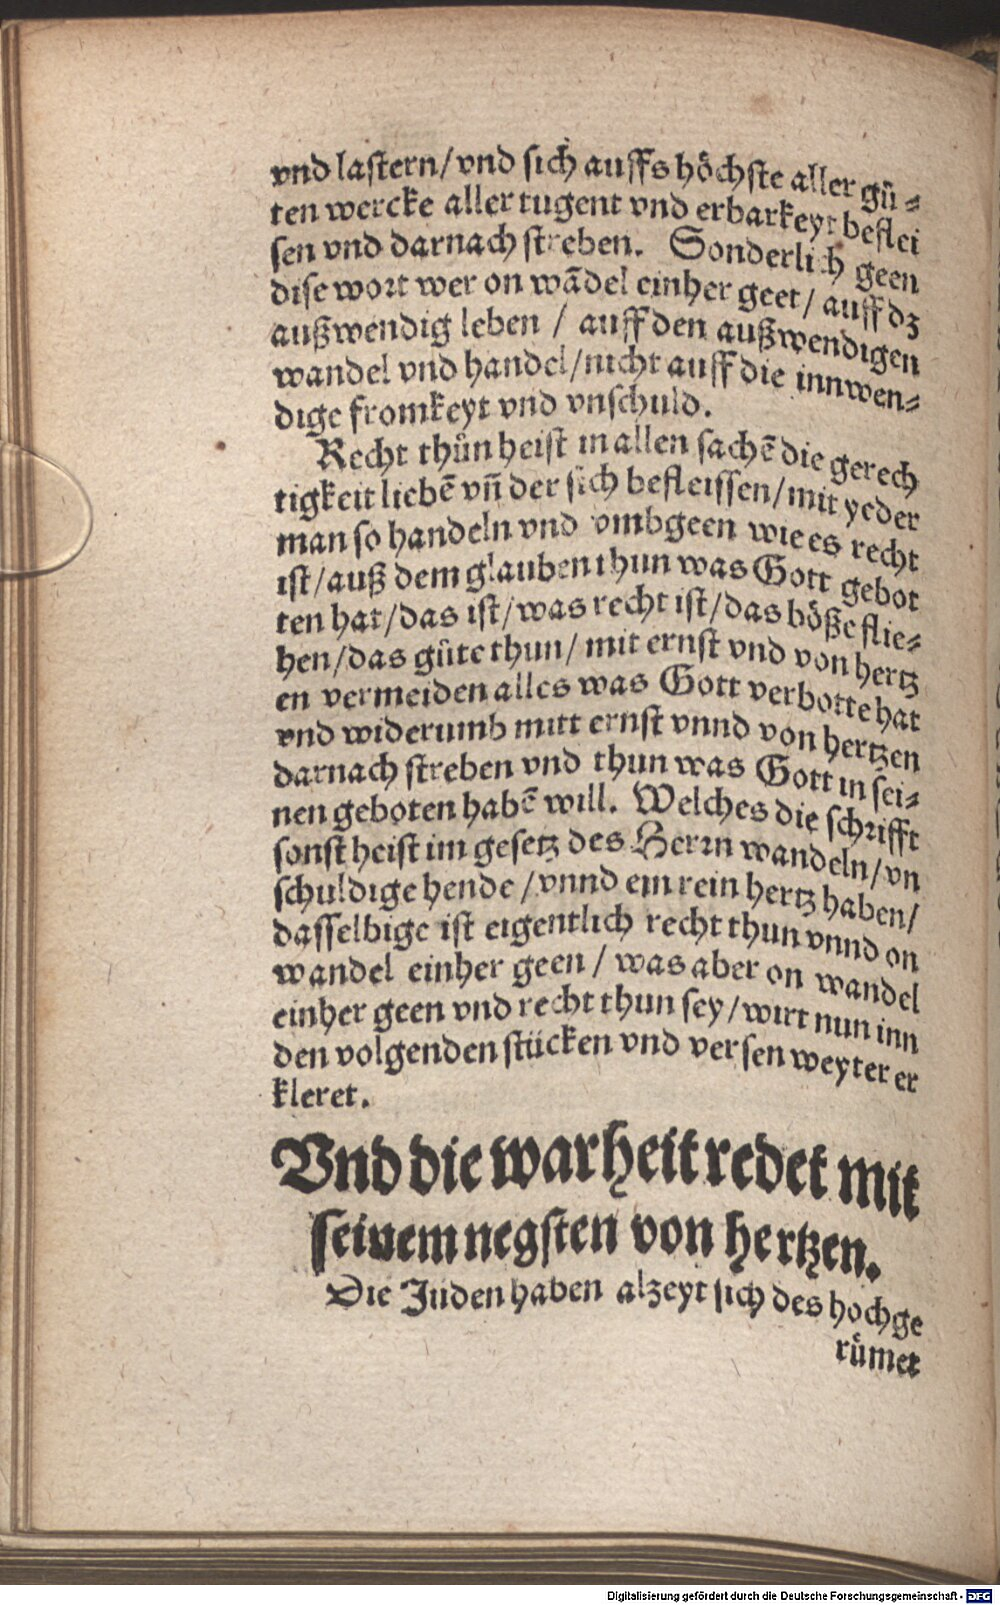 vnd lastern/vnd sich auffs höchste aller gů⸗
ten wercke aller tugent vnd erbarkeyt beflei
sen vnd darnach streben. Sonderlich geen
dise wort wer on wãdel einher geet/ auff dz
außwendig leben / auff den außwendigen
wandel vnd handel/nicht auff die innwen⸗
dige fromkeyt vnd vnschuld.
Recht thůn heist in allen sachẽ die gerech
tigkeit liebẽ vñ der sich befleissen/mit yeder
man so handeln vnd vmbgeen wie es recht
ist/auß dem glauben thun was Gott gebot
ten hat/das ist/was recht ist/das böße flie⸗
hen/das gůte thun/ mit ernst vnd von hertz
en vermeiden alles was Gott verbotte hat
vnd widerumb mitt ernst vnnd von hertzen
darnach streben vnd thun was Gott in sei⸗
nen geboten habẽ will. Welches die schrifft
sonst heist im gesetz des Herrn wandeln/vn
schuldige hende /vnnd ein rein hertz haben/
dasselbige ist eigentlich recht thun vnnd on
wandel einher geen / was aber on wandel
einher geen vnd recht thun sey/wirt nun inn
den volgenden stücken vnd versen weyter er
kleret.
Vnd die warheit redet mit
seinem negsten von hertzen.
Die Juden haben alzeyt sich des hoch ge
růmet
Digitalisierung gefördert durch die Deutsche Forschungsgemeinschaft - DFG